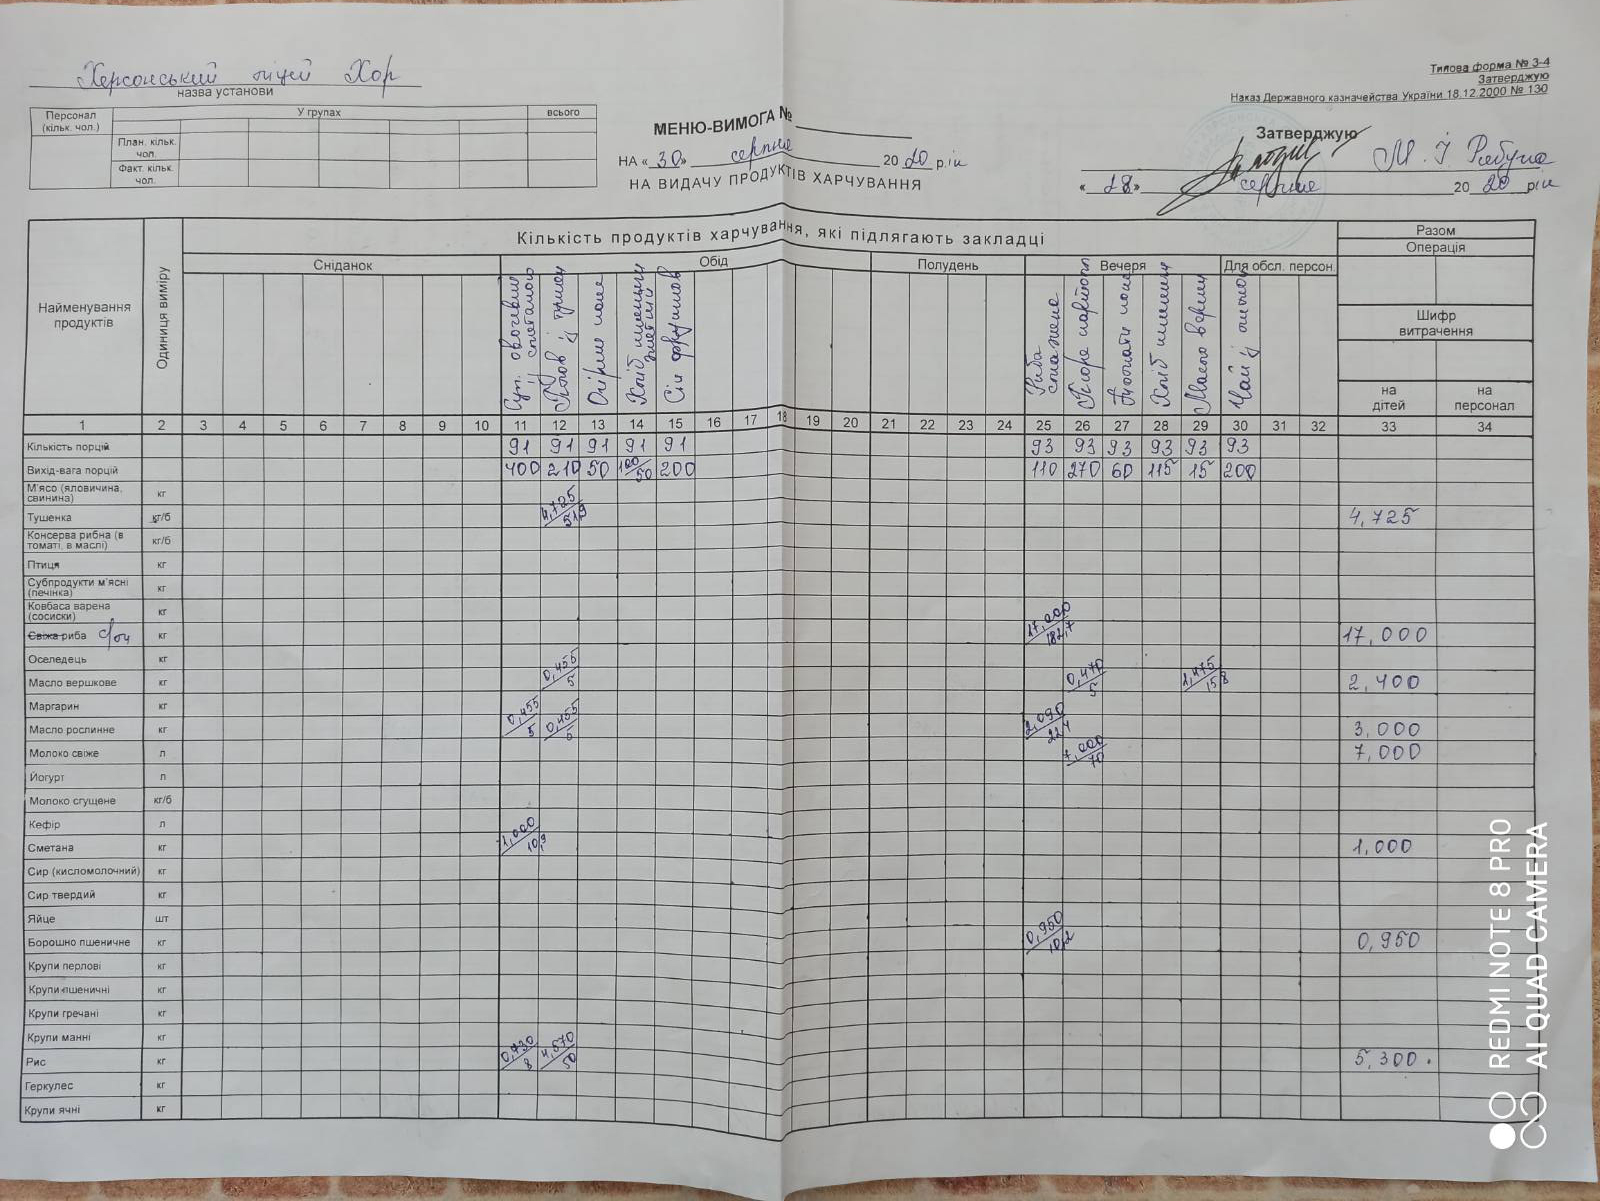 Херсонський ліцей ХОР
назва установи
Типова форма № З-4
Затверджую
Наказ Державного казначейства України 18.12.2000 № 130
Персонал (кільк. чол.) У групах всього
План. кільк. чол.
Факт. кільк. чол.
МЕНЮ-ВИМОГА №
НА « 30 » серпня 2020 рік
НА ВИДАЧУ ПРОДУКТІВ ХАРЧУВАННЯ
Затверджую
М. І
« 28 » серпня 2020 рік
Найменування продуктів
Одиниця виміру
Кількість продуктів харчування, які підлягають закладці
Разом
Операція
Сніданок Обід Полудень Вечеря Для обсл. персон.
Шифр витрачення
на дітей на персонал
Суп овочевий зі сметаною
Плов із тушен
Огірки
Хліб пшенич житній
Сік фруктов
Риба смажена
Пюре картопл
Хліб пшенич
Масло вершк
Чай із лимоном
1 2 3 4 5 6 7 8 9 10 11 12 13 14 15 16 17 18 19 20 21 22 23 24 25 26 27 28 29 30 31 32 33 34
Кількість порцій 91 91 91 91 91 93 93 93 93 93 93
Вихід-вага порцій 400 210 50 100/50 200 110 270 60 115 15 200
М'ясо (яловичина, свинина) кг
Тушенка кг/б 4,725/51,9 4,725
Консерва рибна (в томаті, в маслі) кг/б
Птиця кг
Субпродукти м'ясні (печінка) кг
Ковбаса варена (сосиски) кг
Свіжа риба кг 17,000/182,7 17,000
Оселедець кг
Масло вершкове кг 0,455/5 0,470/5 1,475/15,8 2,400
Маргарин кг
Масло рослинне кг 0,455/5 0,455/5 2,090/22,4 3,000
Молоко свіже л 7,000/70 7,000
Йогурт л
Молоко сгущене кг/б
Кефір л
Сметана кг 1,000/10,9 1,000
Сир (кисломолочний) кг
Сир твердий кг
Яйце шт
Борошно пшеничне кг 0,950/10,2 0,950
Крупи перлові кг
Крупи пшеничні кг
Крупи гречані кг
Крупи манні кг
Рис кг 0,730/8 4,570/50 5,300
Геркулес кг
Крупи ячні кг
REDMI NOTE 8 PRO
AI QUAD CAMERA